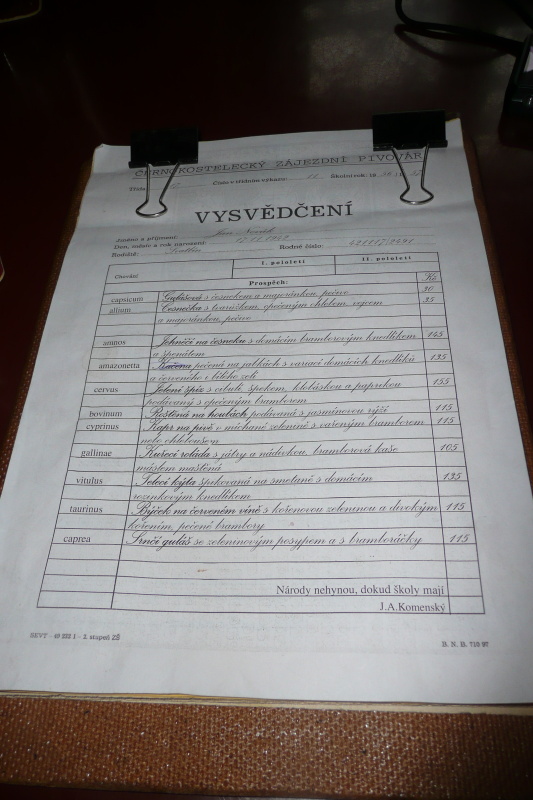 ČERNOKOSTELECKÝ ZÁJEZDNÍ PIVOVAR
Třída Číslo v třídním výkazu: Školní rok 19
VYSVĚDČENÍ
Jméno a příjmení: Jan Novák
Den, měsíc a rok narození:
Bydliště: Rodné číslo:
I. pololetí II. pololetí
Chování
Prospěch: Kč
capsicum Gulášová s česnekem a majoránkou, pečivo 30
allium Česnečka s tvarůžkem, opečeným chlebem, vejcem 35
a majoránkou, pečivo
amnos Jehněčí na česneku s domácím bramborovým knedlíkem 145
a špenátem
amazonetta Kačena pečená na jablkách s variací domácích knedlíků 135
a červeného i bílého zelí
cervus Jelení špíz s cibulí, špekem, klobáskou a paprikou 155
podávaný s opečeným bramborem
bovinum Roštěná na houbách podávaná s jasmínovou rýží 115
cyprinus Kapr na pivě v míchané zelenině s vařeným bramborem 115
nebo chlebousem
gallinae Kuřecí roláda s játry a nádivkou, bramborová kaše 105
máslem maštěná
vitulus Telecí kýta špikovaná na smetaně s domácím 135
rozinkovým knedlíkem
taurinus Býček na červeném víně s kořenovou zeleninou a divokým 115
kořením, pečené brambory
caprea Srnčí guláš se zeleninovým posypem a s bramboráčky 115
Národy nehynou, dokud školy mají
J.A.Komenský
SEVT - 49 252 1 - 2. stupeň ZŠ B. N. B. 710 97